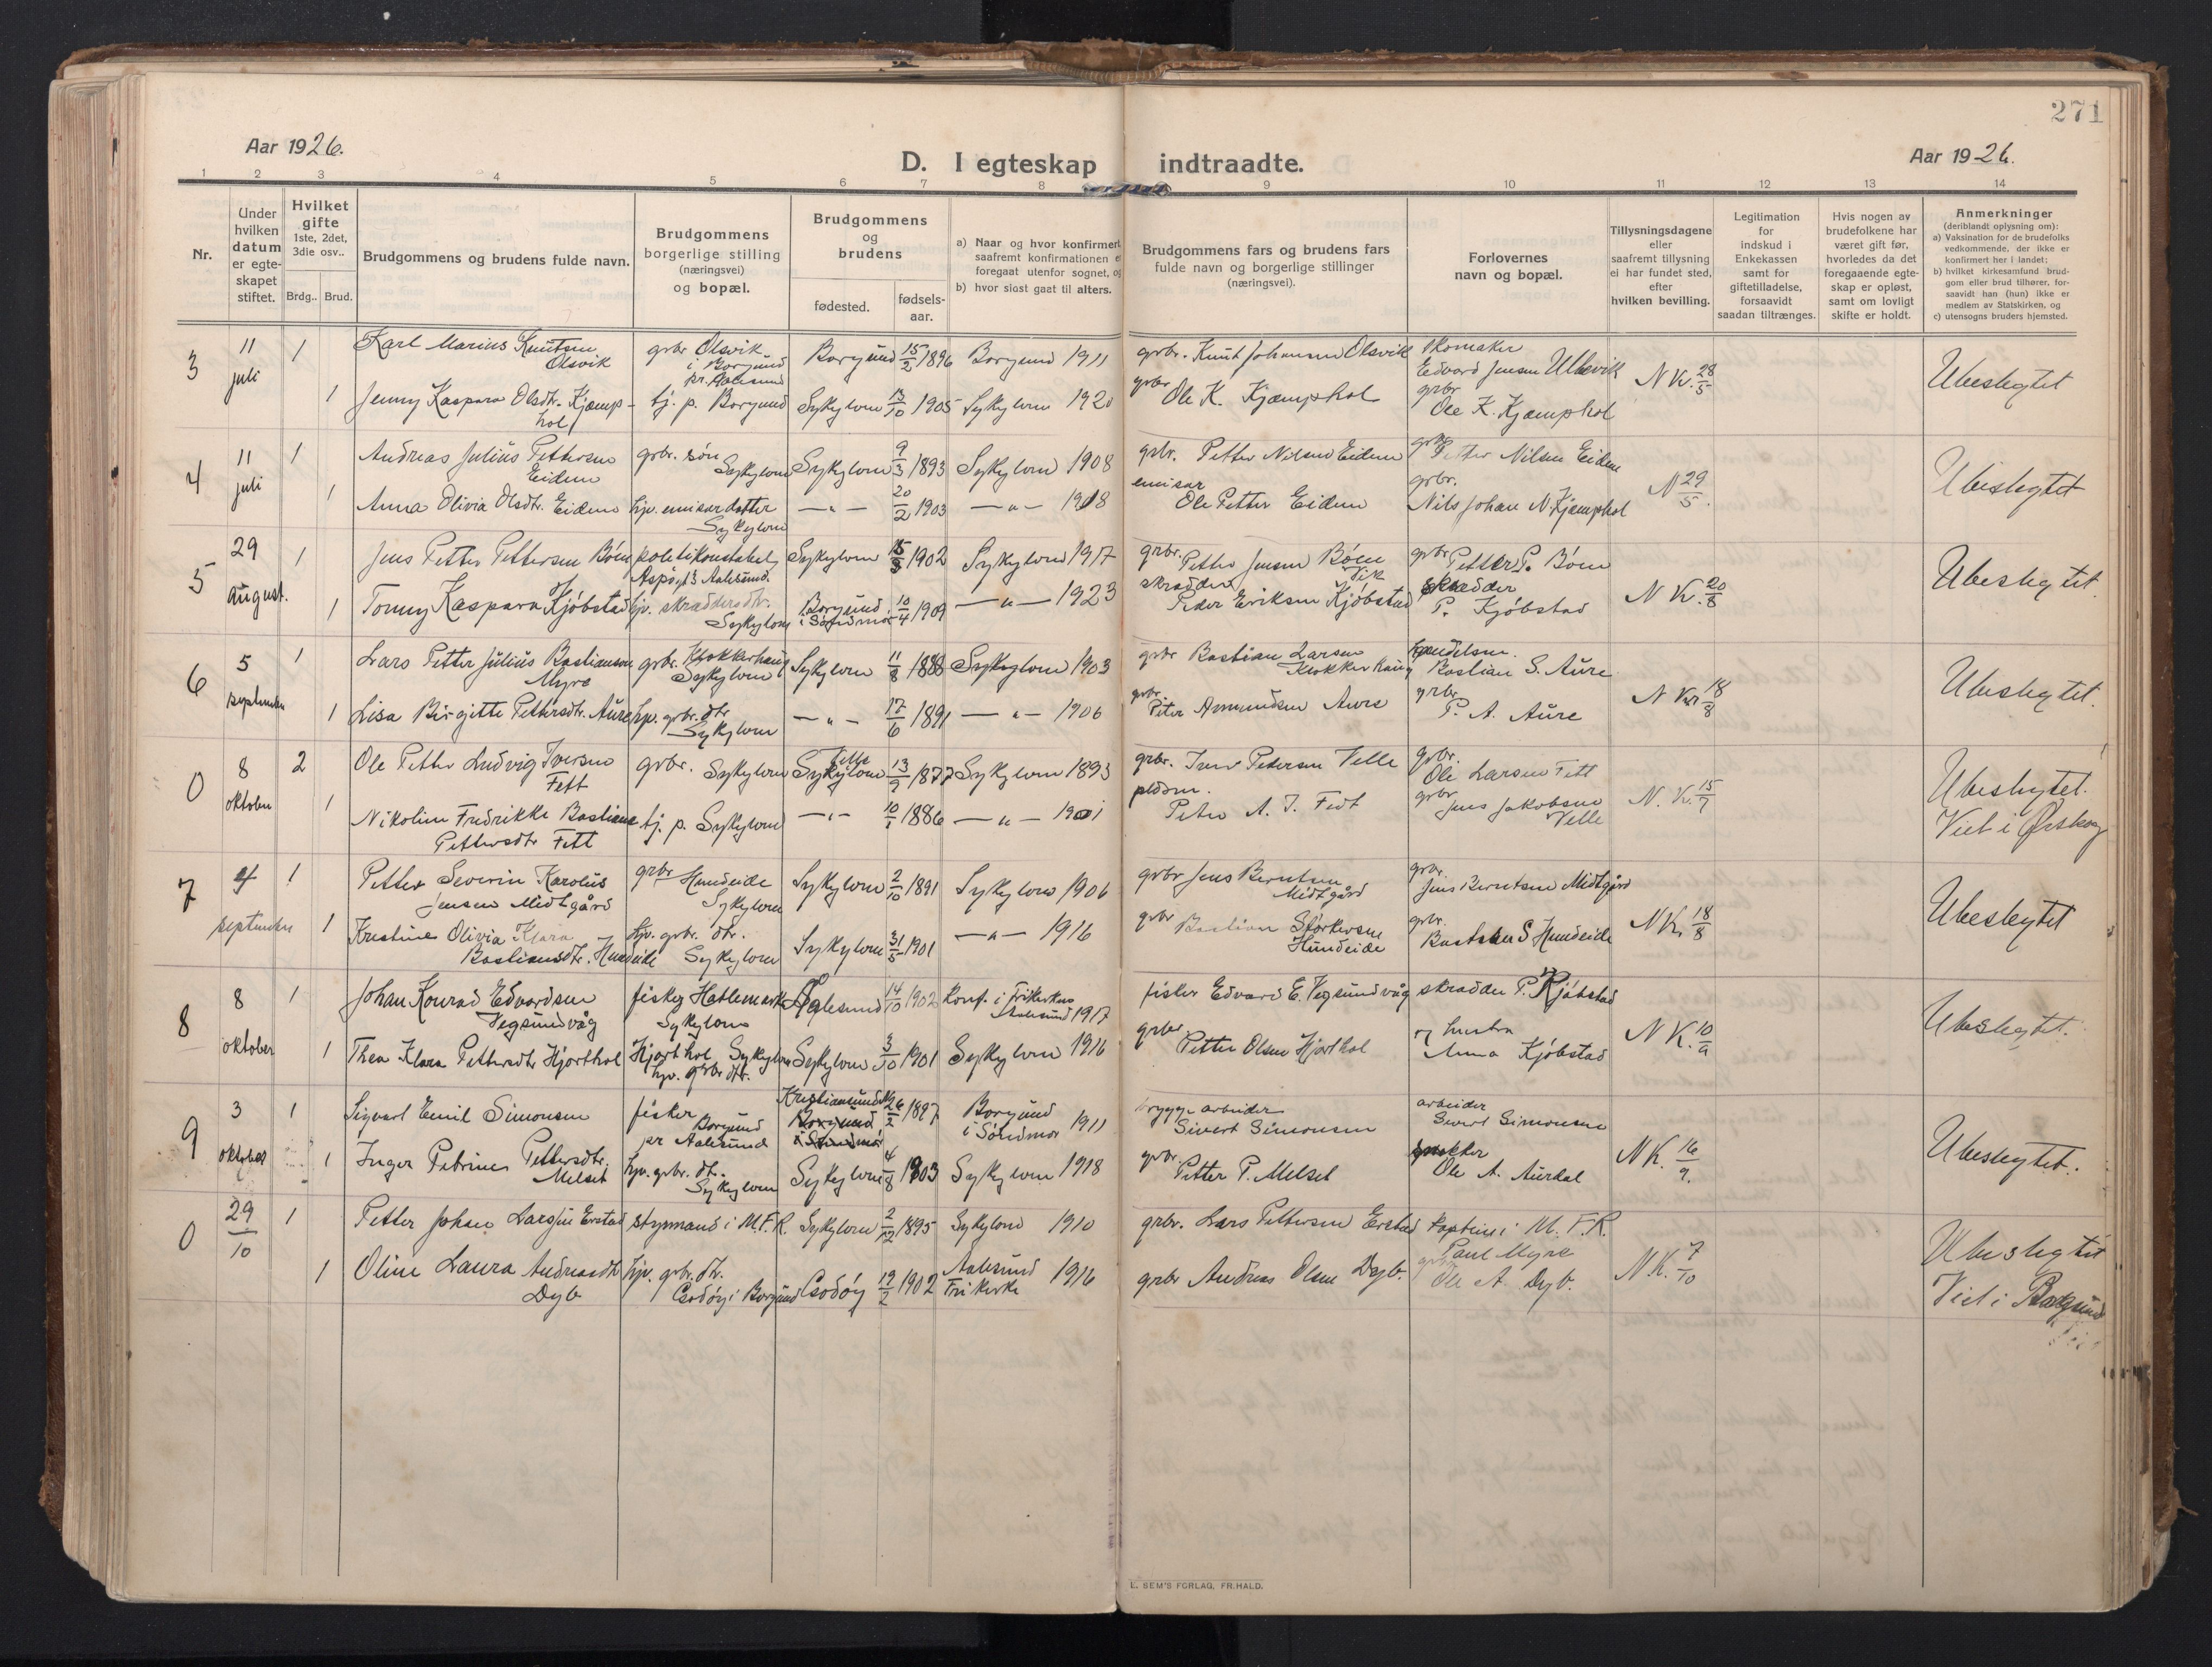 271
Aar 1926.
D. I egteskap indtraadte.
Aar 1926.
1 2 3 4 5 6 7 8 9 10 11 12 13 14
Nr.
Under hvilken datum er egteskapet stiftet.
Hvilket gifte 1ste, 2det, 3die osv..
Brdg.. Brud.
Brudgommens og brudens fulde navn.
Brudgommens borgerlige stilling (næringsvei) og bopæl.
Brudgommens og brudens
fødested. fødselsaar.
a) Naar og hvor konfirmert, saafremt konfirmationen er foregaat utenfor sognet, og
b) hvor sidst gaat til alters.
Brudgommens fars og brudens fars fulde navn og borgerlige stillinger (næringsvei).
Forlovernes navn og bopæl.
Tillysningsdagene eller saafremt tillysning ei har fundet sted, efter hvilken bevilling.
Legitimation for indskud i Enkekassen samt for giftetilladelse, forsaavidt saadan tiltrænges.
Hvis nogen av brudefolkene har været gift før, hvorledes da det foregaaende egteskap er opløst, samt om lovligt skifte er holdt.
Anmerkninger (deriblandt oplysning om):
a) Vaksination for de brudefolks vedkommende, der ikke er konfirmert her i landet;
b) hvilket kirkesamfund brudgom eller brud tilhører, forsaavidt han (hun) ikke er medlem av Statskirken, og
c) utensogns bruders hjemsted.
3 11 juli 1 Karl Marius Knutsen Olsvik grbr Olsvik i Borgund pr. Aalesund Borgund 15/2 1896 Borgund 1911 grbr. Knut Johansen Olsvik skomaker Edvard Jensen Ullevik N K. 28/5 Ubeslegtet
1 Jenny Kaspara Olsdtr. Kjæmphol tj. p. Borgund Sykylven 13/10 1905 Sykylven 1920 grbr Ole K. Kjæmphol grbr Ole K. Kjæmphol
4 11 juli 1 Andreas Julius Pettersen Eidem grbr. søn Sykylven Sykylven 9/3 1893 Sykylven 1908 grbr. Petter Nilsen Eidem grbr Petter Nilsen Eidem N 29/5. Ubeslegtet
1 Anna Olivia Olsdtr. Eidem hjv. emisærdatter Sykylven — " — 20/2 1903 — " — 1918 emisær Ole Petter Eidem grbr. Nils Johan N. Kjæmphol
5 29 august. 1 Jens Petter Pettersen Bóen politikonstabel, Aspøgt 3 Aalesund. Sykylven 15/3 1902 Sykylven 1917 grbr. Petter Jensen Bóen Vik grbr Petter P. Bóen N K. 20/8 Ubeslegtet.
1 Tonny Kaspara Kjóbstad hjv. skræddersdtr. Sykylven Borgund i Søndmør 10/4 1909 — " — 1923 skrædder Peder Eriksen Kjóbstad skrædder P. Kjóbstad
6 5 september 1 Lars Petter Julius Bastiansen Myre grbr. Klokkerhaug Sykylven Sykylven 11/8 1888 Sykylven 1903 grbr Bastian Larsen Klokkerhaug handelsm. Bastian S. Aure N Kr 18/8 Ubeslegtet.
1 Lisa Birgitte Pettersdtr. Aure hjv. grbr. dtr Sykylven — " — 17/6 1891 — " — 1906 grbr. Peter Asmundsen Aure grbr P. A. Aure
0 8 oktober 2 Ole Petter Ludvig Iversen Fett grbr. Sykylven Velle Sykylven 13/9 1877 Sykylven 1893 grbr. Iver Pedersen Velle grbr. Ole Larsen Fett N. K. 15/7 Ubeslegtet. Viet i Ørskog
1 Nikoline Fredrikke Bastiane Pettersdtr Fett tj. p. Sykylven — " — 10/1 1886 — " — 1901 pldsm. Peter A. I. Fett grbr Jens Jakobsen Velle
7 4 september 1 Petter Severin Karolius Jensen Midtgård grbr Hundeide Sykylven Sykylven 2/10 1891 Sykylven 1906 grbr Jens Berntsen Midtgård grbr. Jens Berntsen Midtgård N K. 18/8 Ubeslegtet
1 Kristine Olivia Klara Bastiansdtr. Hundeide hjv. grbr. dtr. Sykylven Sykylven 31/5 1901 — " — 1916 grbr Bastian Størkersen Hundeide grbr. Bastian S Hundeide
8 8 oktober 1 Johan Konrad Edvardsen Vegsundvåg fisker Hatlemark Sykylven Aalesund 14/10 1902 Konf. i Frikirken Aalesund 1917 fisker Edvard E. Vegsundvåg skrædder P. Kjóbstad N K. 10/9 Ubeslegtet.
1 Thea Klara Pettersdtr Hjorthol Hjorthol Sykylven hjv. grbr dtr. Sykylven 3/10 1901 Sykylven 1916 grbr Petter Olsen Hjorthol og hustru Anna Kjóbstad
9 3 oktober 1 Sigvart Emil Simonsen fisker Borgund pr Aalesund Kristiansund N Borgund i Søndmør 26/2 1897 Borgund i Søndmør 1911 bryggearbeider Sivert Simonsen arbeider Sivert Simonsen N K. 16/9. Ubeslegtet.
1 Inger Petrine Pettersdtr. Melset hjv. grbr. dtr. Sykylven Sykylven 4/8 1903 Sykylven 1918 grbr. Petter P. Melset snekker Ole A. Aurdal
0 29/10 1 Petter Johan Larsen Erstad styrmand i M.F.R. Sykylven 2/12 1895 Sykylven 1910 grbr. Lars Pettersen Erstad kaptein i M. F. R. Paul Myre N. K. 7/10 Ubeslegtet Viet i Borgund
1 Oline Laura Andreasdtr Dyb hjv. grbr. dtr. Godöy i Borgund Godöy 19/2 1902 Aalesund Frikirke 1916 grbr Andreas Olsen Dyb. grbr Ole A. Dyb.
E. SEM'S FORLAG, FR.HALD.